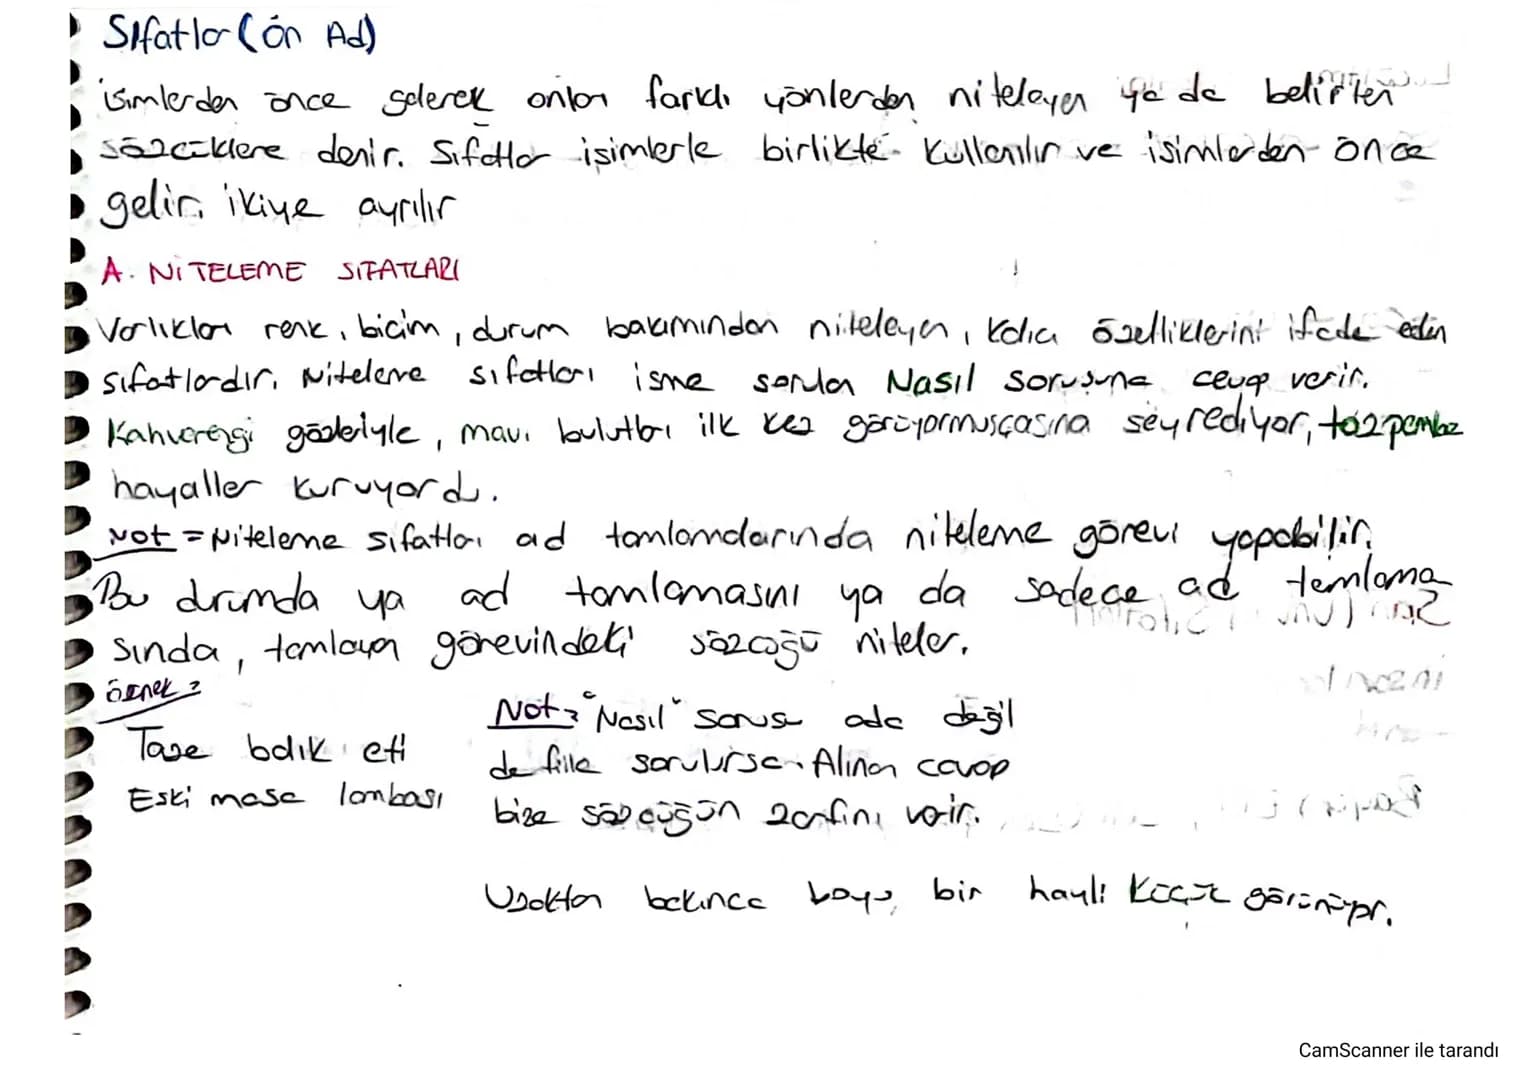 Sıfatlar (Ön Ad)
isimlerden önce gelerek onları farklı yönlerden niteleyen ya da belirten
sözcüklere denir. Sıfatlar isimlerle birlikte kullanılır ve isimlerden önce
gelir. ikiye ayrılır
A. NİTELEME SIFATLARI
Varlıkları renk, bicim, durum bakımından niteleyen, kalıcı özelliklerini ifade eden
sıfatlardır. Niteleme sıfatları isme sorulan Nasıl sorusuna cevap verir.
Kahverengi gözleriyle, mavi bulutları ilk kez görüyormuşçasına seyrediyor, tozpembe
hayaller kuruyordu.
Not = Niteleme sıfatları ad tamlamalarında niteleme görevi yapabilir.
Bu drumda ya ad tamlamasını ya da sadece ad tamlama
sında, tamlayan görevindeki sözcüğü niteler.
örnek =
Taze balık eti
Eski masa lambası
Not = "Nasıl" sorusu ada değil
de fiile sorulursa. Alınan cevap
bize sözcüğün zarfını verir.
Uzaktan bakınca boyu, bir hayli küçük görünüyor.
CamScanner ile tarandı